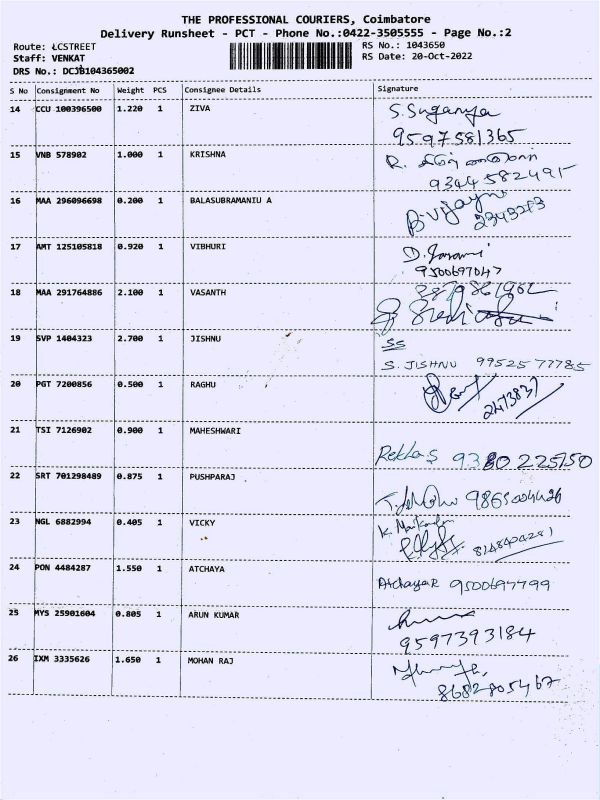 THE PROFESSIONAL COURIERS, Coimbatore
Delivery Runsheet - PCT - Phone No.:0422-3505555 - Page No.:2
Route: LCSTREET
RS No.: 1043650
Staff: VENKAT
RS Date: 20-Oct-2022
DRS No.: DCJB104365002
S No Consignment No Weight PCS Consignee Details Signature
14 CCU 100396500 1.220 1 ZIVA S.Suganya
9597581365
15 VNB 578902 1.000 1 KRISHNA R.
9344582495
16 MAA 296096698 0.200 1 BALASUBRAMANIU A B-Vijay
2343243
17 AMT 125105818 0.920 1 VIBHURI D.
9500697047
18 MAA 291764886 2.100 1 VASANTH
19 SVP 1404323 2.700 1 JISHNU SS
S. JISHNU 9952577785
20 PGT 7200856 0.500 1 RAGHU
2473837
21 TSI 7126902 0.900 1 MAHESHWARI
Rekha S 9380225150
22 SRT 701298489 0.875 1 PUSHPARAJ
23 NGL 6882994 0.405 1 VICKY K.
24 PON 4484287 1.550 1 ATCHAYA
AtchayaR 9500697799
25 MYS 25901604 0.805 1 ARUN KUMAR
9597393184
26 IXM 3335626 1.650 1 MOHAN RAJ
8682805467